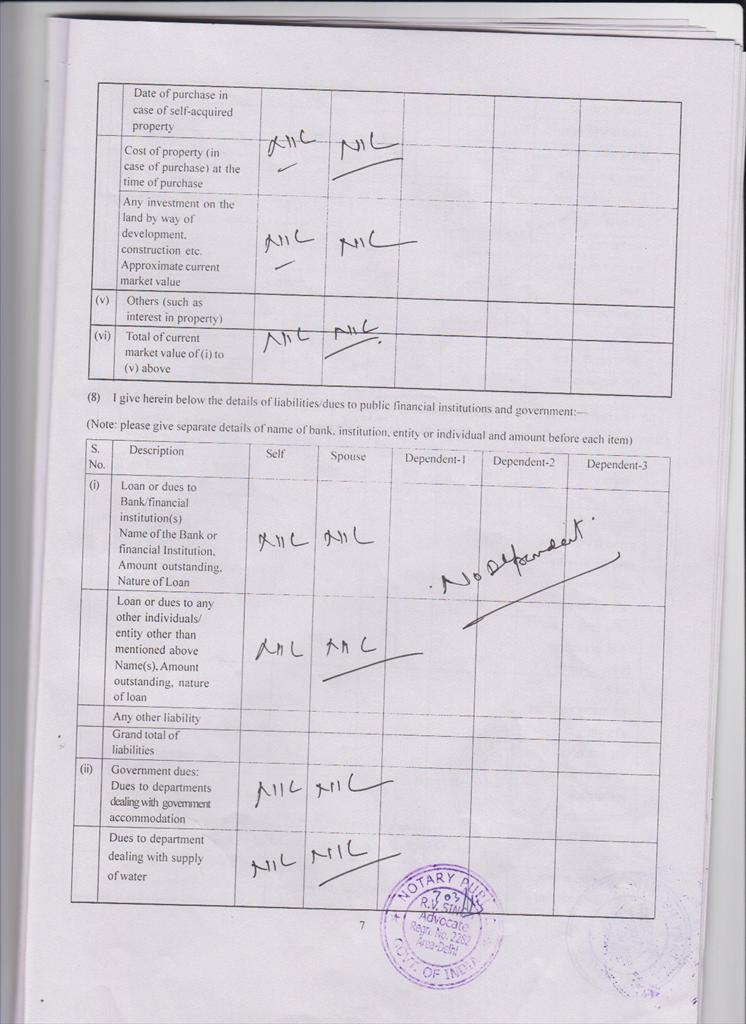 Date of purchase in
case of self-acquired
property
Cost of property (in
case of purchase) at the
time of purchase
NIL NIL
Any investment on the
land by way of
development,
construction etc.
Approximate current
market value
NIL NIL
(v) Others (such as
interest in property)
(vi) Total of current
market value of (i) to
(v) above
NIL NIL
(8) I give herein below the details of liabilities/dues to public financial institutions and government:—
(Note: please give separate details of name of bank, institution, entity or individual and amount before each item)
S. No. Description Self Spouse Dependent-1 Dependent-2 Dependent-3
(i) Loan or dues to
Bank/financial
institution(s)
Name of the Bank or
financial Institution,
Amount outstanding,
Nature of Loan
NIL NIL
No Dependent.
Loan or dues to any
other individuals/
entity other than
mentioned above
Name(s), Amount
outstanding, nature
of loan
NIL NIL
Any other liability
Grand total of
liabilities
(ii) Government dues:
Dues to departments
dealing with government
accommodation
NIL NIL
Dues to department
dealing with supply
of water
NIL NIL
7
NOTARY
R.V. SIN
Advocate
Regn. No. 2282
Area-Delhi
GOVT. OF INDIA